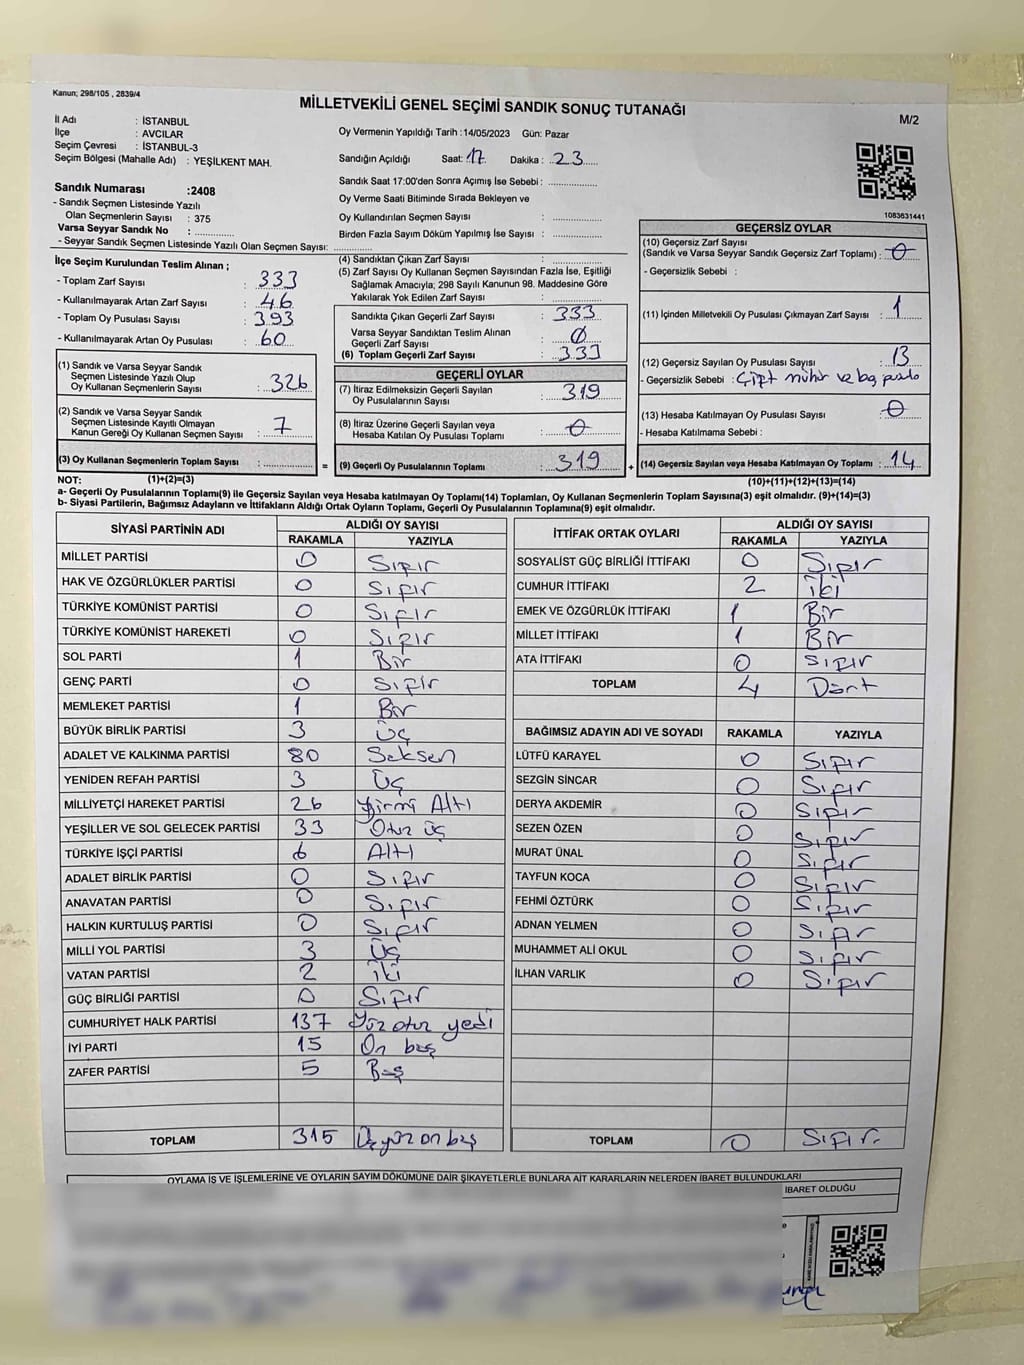 Kanun; 298/105 , 2839/4
MİLLETVEKİLİ GENEL SEÇİMİ SANDIK SONUÇ TUTANAĞI
M/2
İl Adı : İSTANBUL
İlçe : AVCILAR
Seçim Çevresi : İSTANBUL-3
Seçim Bölgesi (Mahalle Adı) : YEŞİLKENT MAH.
Sandık Numarası :2408
- Sandık Seçmen Listesinde Yazılı
Olan Seçmenlerin Sayısı : 375
Varsa Seyyar Sandık No : ..............
- Seyyar Sandık Seçmen Listesinde Yazılı Olan Seçmen Sayısı: ..............
Oy Vermenin Yapıldığı Tarih :14/05/2023 Gün: Pazar
Sandığın Açıldığı Saat: 17 Dakika : 23
Sandık Saat 17:00'den Sonra Açımış İse Sebebi : ..............
Oy Verme Saati Bitiminde Sırada Bekleyen ve
Oy Kullandırılan Seçmen Sayısı : ..............
Birden Fazla Sayım Döküm Yapılmış İse Sayısı : ..............
1083631441
İlçe Seçim Kurulundan Teslim Alınan ;
- Toplam Zarf Sayısı : 333
- Kullanılmayarak Artan Zarf Sayısı : 46
- Toplam Oy Pusulası Sayısı : 393
- Kullanılmayarak Artan Oy Pusulası : 60
(1) Sandık ve Varsa Seyyar Sandık
Seçmen Listesinde Yazılı Olup
Oy Kullanan Seçmenlerin Sayısı : 326
(2) Sandık ve Varsa Seyyar Sandık
Seçmen Listesinde Kayıtlı Olmayan
Kanun Gereği Oy Kullanan Seçmen Sayısı : 7
(3) Oy Kullanan Seçmenlerin Toplam Sayısı : ..............
(4) Sandıktan Çıkan Zarf Sayısı : ..............
(5) Zarf Sayısı Oy Kullanan Seçmen Sayısından Fazla İse, Eşitliği
Sağlamak Amacıyla; 298 Sayılı Kanunun 98. Maddesine Göre
Yakılarak Yok Edilen Zarf Sayısı : ..............
Sandıkta Çıkan Geçerli Zarf Sayısı : 333
Varsa Seyyar Sandıktan Teslim Alınan
Geçerli Zarf Sayısı : 0
(6) Toplam Geçerli Zarf Sayısı : 333
GEÇERLİ OYLAR
(7) İtiraz Edilmeksizin Geçerli Sayılan
Oy Pusulalarının Sayısı : 319
(8) İtiraz Üzerine Geçerli Sayılan veya
Hesaba Katılan Oy Pusulası Toplamı : 0
= (9) Geçerli Oy Pusulalarının Toplamı : 319
GEÇERSİZ OYLAR
(10) Geçersiz Zarf Sayısı
(Sandık ve Varsa Seyyar Sandık Geçersiz Zarf Toplamı) : 0
- Geçersizlik Sebebi :
(11) İçinden Milletvekili Oy Pusulası Çıkmayan Zarf Sayısı : 1
(12) Geçersiz Sayılan Oy Pusulası Sayısı : 13
- Geçersizlik Sebebi : Çift mühür ve boş pusula
(13) Hesaba Katılmayan Oy Pusulası Sayısı : 0
- Hesaba Katılmama Sebebi :
+ (14) Geçersiz Sayılan veya Hesaba Katılmayan Oy Toplamı : 14
NOT: (1)+(2)=(3)
(10)+(11)+(12)+(13)=(14)
a- Geçerli Oy Pusulalarının Toplamı(9) ile Geçersiz Sayılan veya Hesaba katılmayan Oy Toplamı(14) Toplamları, Oy Kullanan Seçmenlerin Toplam Sayısına(3) eşit olmalıdır. (9)+(14)=(3)
b- Siyasi Partilerin, Bağımsız Adayların ve İttifakların Aldığı Ortak Oyların Toplamı, Geçerli Oy Pusulalarının Toplamına(9) eşit olmalıdır.
SİYASİ PARTİNİN ADI ALDIĞI OY SAYISI
RAKAMLA YAZIYLA
MİLLET PARTİSİ 0 Sıfır
HAK VE ÖZGÜRLÜKLER PARTİSİ 0 Sıfır
TÜRKİYE KOMÜNİST PARTİSİ 0 Sıfır
TÜRKİYE KOMÜNİST HAREKETİ 0 Sıfır
SOL PARTİ 1 Bir
GENÇ PARTİ 0 Sıfır
MEMLEKET PARTİSİ 1 Bir
BÜYÜK BİRLİK PARTİSİ 3 üç
ADALET VE KALKINMA PARTİSİ 80 Seksen
YENİDEN REFAH PARTİSİ 3 üç
MİLLİYETÇİ HAREKET PARTİSİ 26 Yirmi Altı
YEŞİLLER VE SOL GELECEK PARTİSİ 33 Otuz üç
TÜRKİYE İŞÇİ PARTİSİ 6 Altı
ADALET BİRLİK PARTİSİ 0 Sıfır
ANAVATAN PARTİSİ 0 Sıfır
HALKIN KURTULUŞ PARTİSİ 0 Sıfır
MİLLİ YOL PARTİSİ 3 üç
VATAN PARTİSİ 2 iki
GÜÇ BİRLİĞİ PARTİSİ 0 Sıfır
CUMHURİYET HALK PARTİSİ 137 Yüz otuz yedi
İYİ PARTİ 15 On beş
ZAFER PARTİSİ 5 Beş
TOPLAM 315 Üç yüz on beş
İTTİFAK ORTAK OYLARI ALDIĞI OY SAYISI
RAKAMLA YAZIYLA
SOSYALİST GÜÇ BİRLİĞİ İTTİFAKI 0 Sıfır
CUMHUR İTTİFAKI 2 İki
EMEK VE ÖZGÜRLÜK İTTİFAKI 1 Bir
MİLLET İTTİFAKI 1 Bir
ATA İTTİFAKI 0 Sıfır
TOPLAM 4 Dört
BAĞIMSIZ ADAYIN ADI VE SOYADI RAKAMLA YAZIYLA
LÜTFÜ KARAYEL 0 Sıfır
SEZGİN SİNCAR 0 Sıfır
DERYA AKDEMİR 0 Sıfır
SEZEN ÖZEN 0 Sıfır
MURAT ÜNAL 0 Sıfır
TAYFUN KOCA 0 Sıfır
FEHMİ ÖZTÜRK 0 Sıfır
ADNAN YELMEN 0 Sıfır
MUHAMMET ALİ OKUL 0 Sıfır
İLHAN VARLIK 0 Sıfır
TOPLAM 0 Sıfır.
OYLAMA İŞ VE İŞLEMLERİNE VE OYLARIN SAYIM DÖKÜMÜNE DAİR ŞİKAYETLERLE BUNLARA AİT KARARLARIN NELERDEN İBARET BULUNDUKLARI
İBARET OLDUĞU